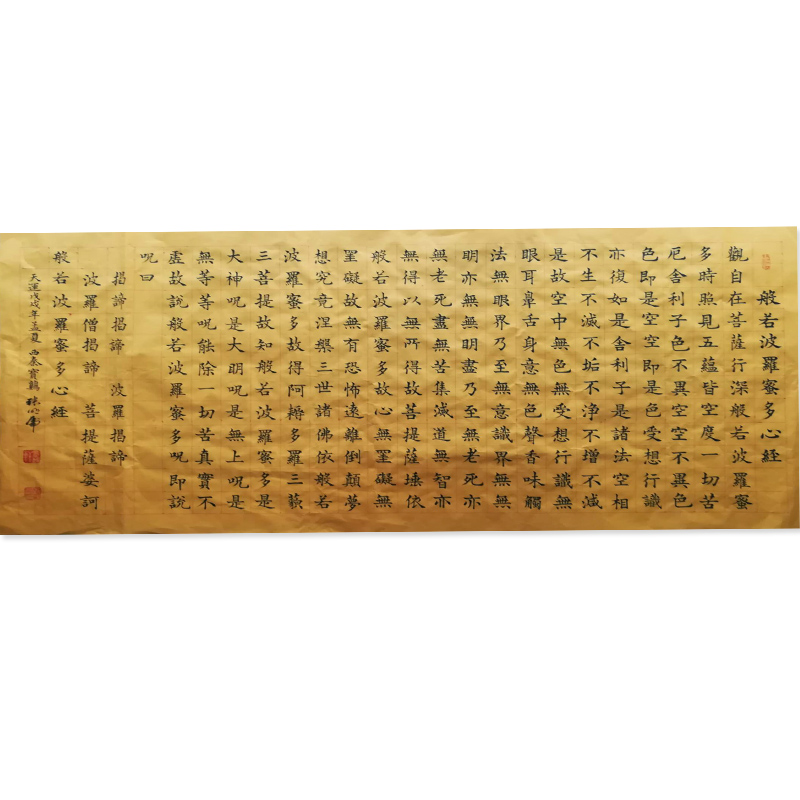 般若波羅蜜多心經
觀自在菩薩行深般若波羅蜜
多時照見五蘊皆空度一切苦
厄舍利子色不異空空不異色
色即是空空即是色受想行識
亦復如是舍利子是諸法空相
不生不滅不垢不净不增不減
是故空中無色無受想行識無
眼耳鼻舌身意無色聲香味觸
法無眼界乃至無意識界無無
明亦無無明盡乃至無老死亦
無老死盡無苦集滅道無智亦
無得以無所得故菩提薩埵依
般若波羅蜜多故心無罣礙無
罣礙故無有恐怖遠離倒顛夢
想究竟涅槃三世諸佛依般若
波羅蜜多故得阿耨多羅三藐
三菩提故知般若波羅蜜多是
大神呪是大明呪是無上呪是
無等等呪能除一切苦真實不
虛故說般若波羅蜜多呪即說
呪曰
揭諦揭諦 波羅揭諦
波羅僧揭諦 菩提薩婆訶
般若波羅蜜多心經
天運戊戌年孟夏 西秦寶鷄